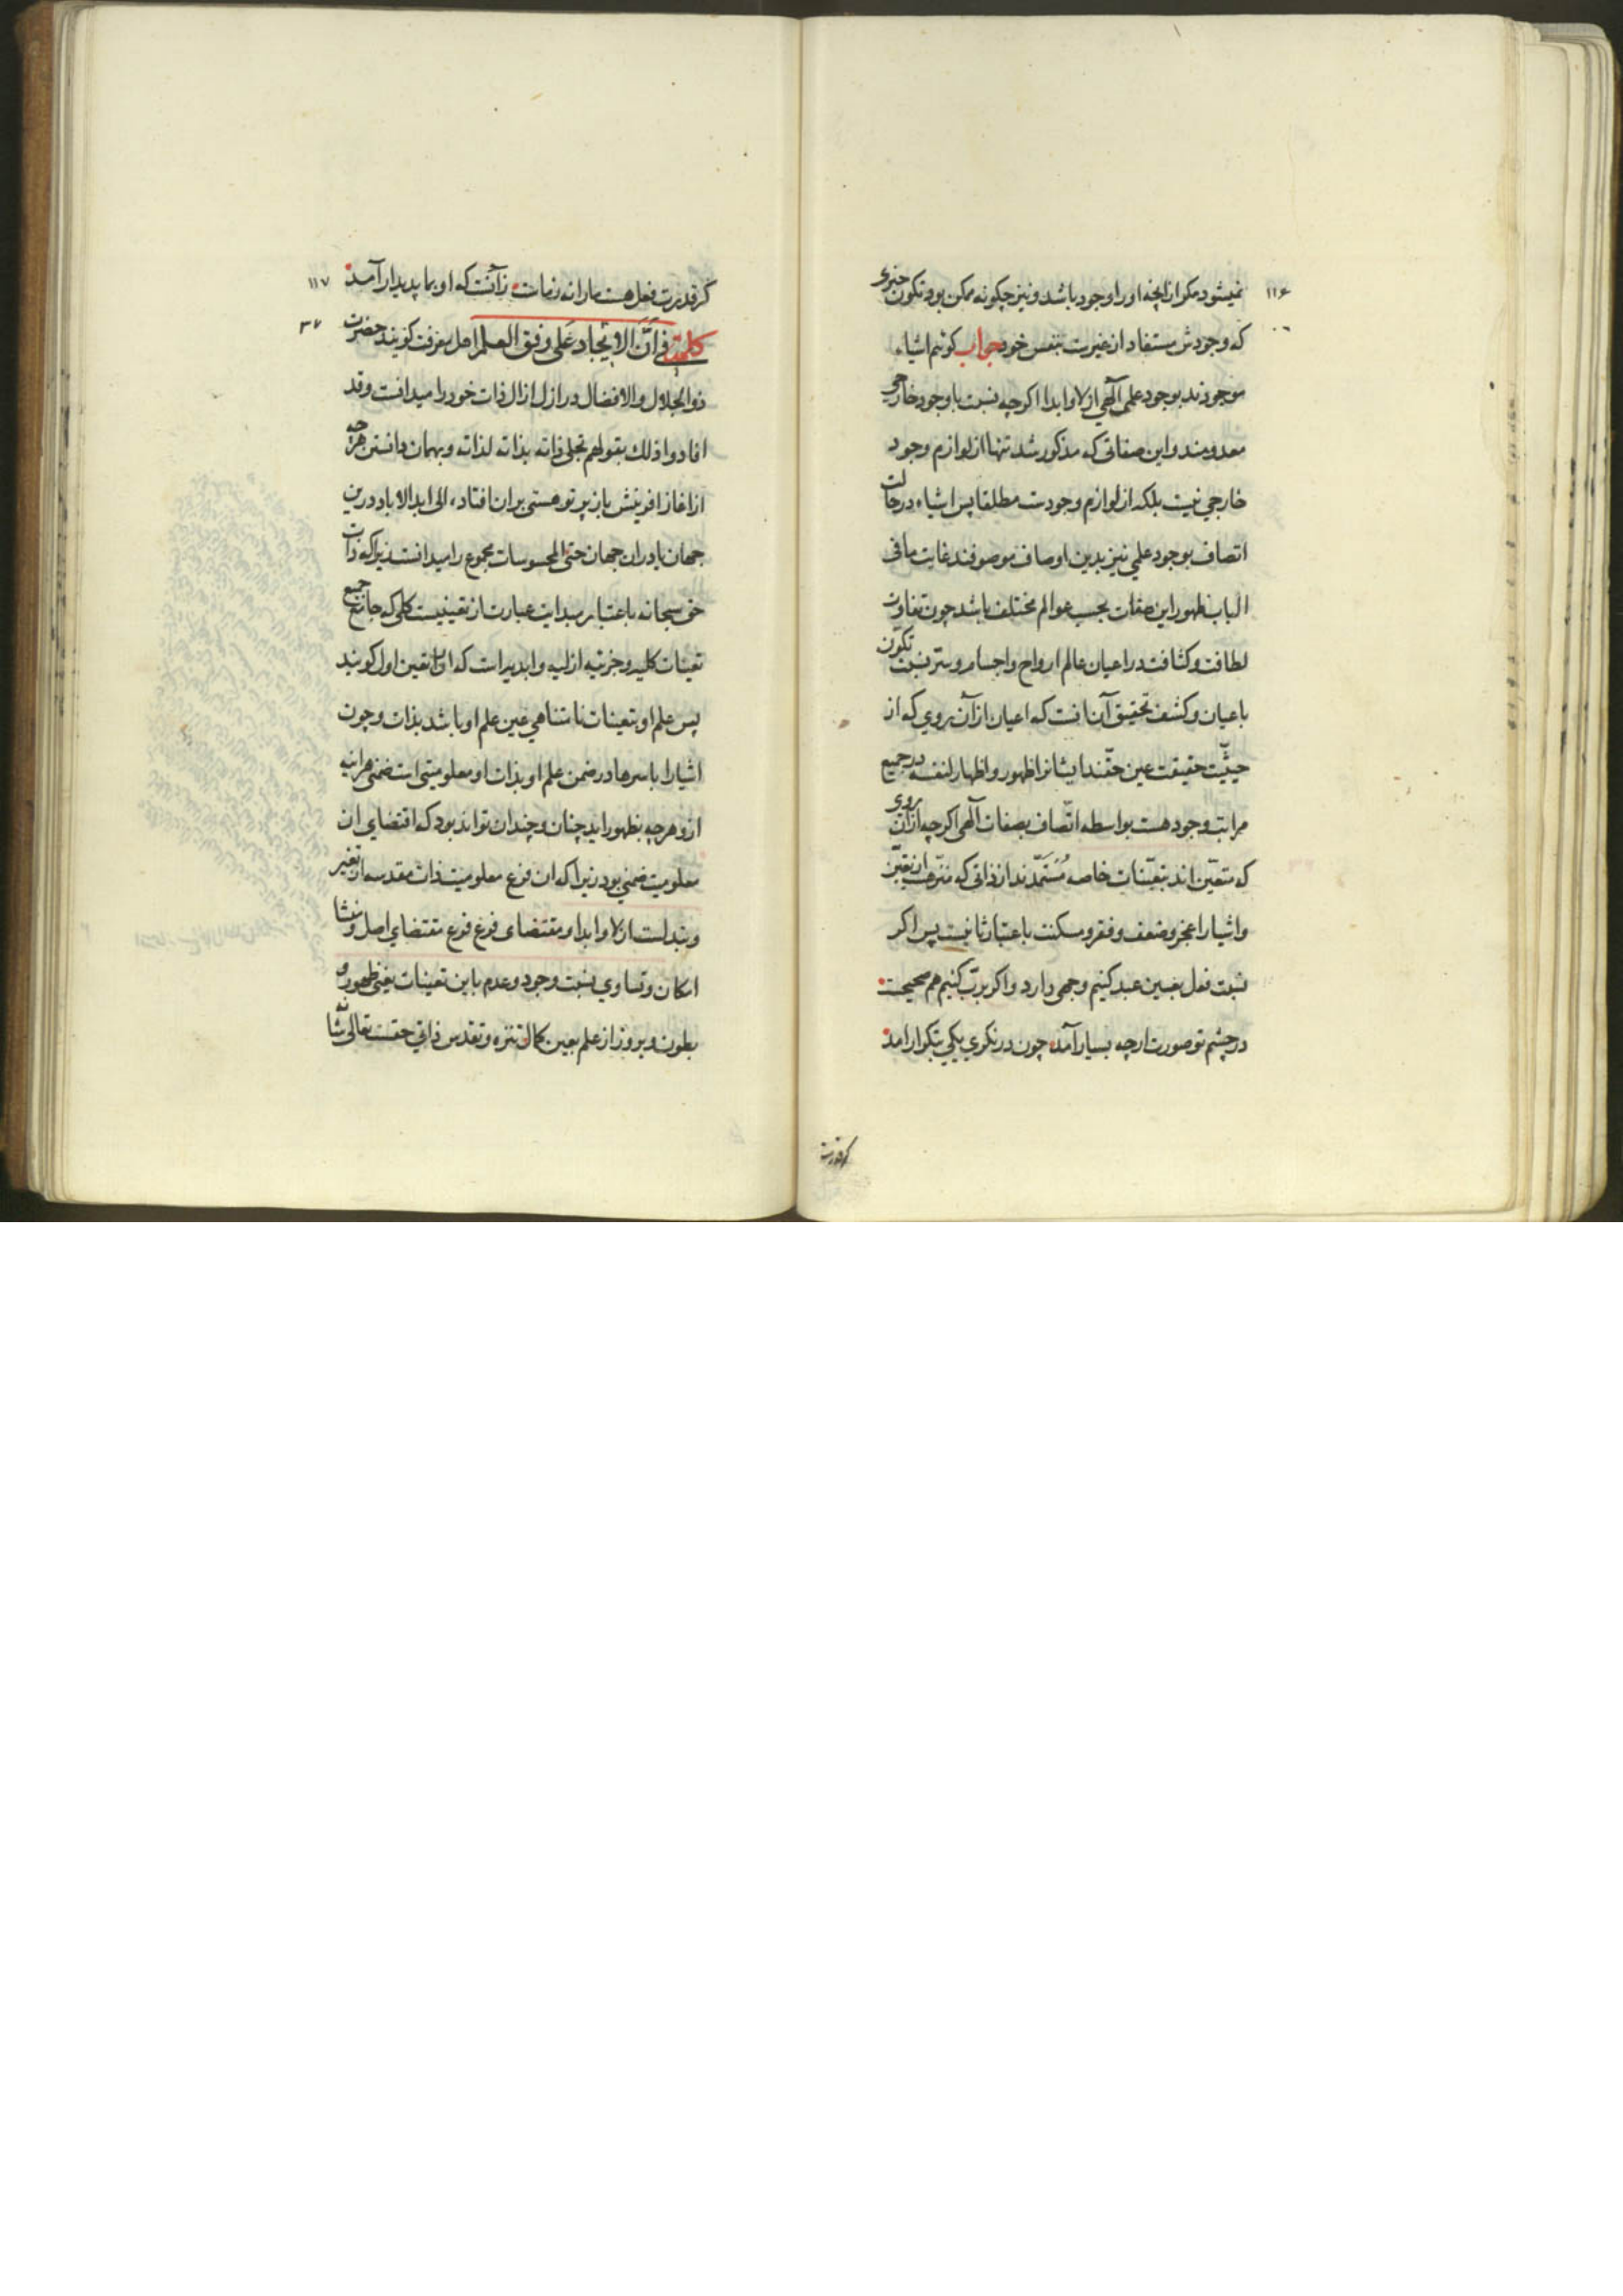 ۱۱۶
نمیشود مکر از انچه او را وجود باشد و نیز چکونه ممکن بود تکون چیزی
که وجودش مستفاد از غیرست بنفس خود جواب کوئیم اشیاء
موجودند بوجود علمی الٓهی ازلا وابدا اکرچه نسبت با وجود خارجی
معدومند و این صفاتی که مذکور شد تنها از لوازم وجود
خارجی نیست بلکه از لوازم وجودست مطلقا پس اشیاء در حالت
اتصاف بوجود علمی نیز بدین اوصاف موصوفند غایت ما فی
الباب ظهور این صفات بحسب عوالم مختلف باشد چون تفاوت
لطافت و کثافت در اعیان عالم ارواح و اجسام و سرّ نسبت تکون
باعیان و کشف تحقیق آن انست که اعیان از آن روی که از
حیثیّت حقیقت عین حقّند ایشانرا ظهور و اظهار لنفسه در جمیع
مراتب وجود هست بواسطه اتّصاف بصفات الٓهی اکرچه از آن روی
که متعیّن اند بتعیّنات خاصه مُستَمَدّند از ذاتی که منزهست از تعیّن
و اشیا را عجز و ضعف و فقر و مسکنت باعتبار ثانیست پس اکر
نسبت فعل بعین عبد کنیم وجهی دارد و اکر بربّ کنیم هم صحیحست
در چشم تو صورت ارچه بسیار آمد چون در نکری یکی بتکرار امد
کر قدرت
۱۱۷
کر قدرت و فعل هست ما را نه زماست زآنست که او بما پدیدار آمد
۳۷
کلمة فی اَنَّ الاِیجاد عَلی وفق العلم اهل معرفت کویند حضرت
ذو الجلال والافضال در ازل ازال ذات خود را میدانست وقد
افادوا ذلك بقولهم تجلی ذاته بذاته لذاته و بهمان دانستن هرچه
از اغاز افرینش باز پرتو هستی بران افتاد، الی ابد الاباد درین
جهان یا دران جهان حتی المحسوسات مجموع را میدانست زیرا که ذات
حق سبحانه باعتبار مبدایت عبارت از تعینیست کلی که جامع جمیع
تعینات کلیه و جزئیه ازلیه و ابدیه است که اورا تعین اول کویند
پس علم او بتعینات نامتناهی عین علم او باشد بذات و چون
اشیا را باسرها در ضمن علم او بذات او معلومیتی است ضمنی هراینه
ازو هرچه بظهور اید چنان و چندان تواند بود که اقتضای ان
معلومیت ضمنی بود زیرا که ان فرع معلومیت ذات مقدسه از تغیر
و تبدلست ازلا وابدا و مقتضای فرع فرع مقتضای اصل و منشا
امکان و تساوی نسبت وجود و عدم باین تعینات یعنی ظهور و
بطون و بروز از علم بعین کمال تنزه و تقدس ذاتی حقست تعالی شانه